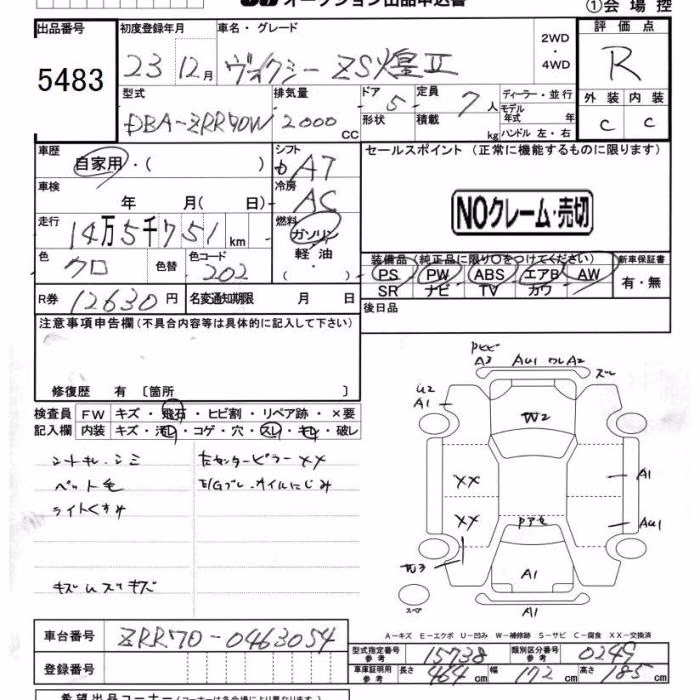 オークション出品申込書
①会場控
出品番号 初度登録年月 車名・グレード 評価点
5483 23 12月 ヴォクシー ZS煌Ⅱ 2WD・4WD R
型式 排気量 ドア 定員 ディーラー・並行 外装 内装
DBA-ZRR70W 2000cc 5 7人 モデル年式 年 C C
形状 積載 kg ハンドル 左・右
車歴 シフト セールスポイント (正常に機能するものに限ります)
自家用・( ) AT
車検 冷房
年 月(日) AC
NOクレーム・売切
走行 燃料
14万5千751km ガソリン
軽油
色 色替 色コード ・( )
クロ 202
装備品 (純正品に限り〇をつけてください) 新車保証書
PS PW ABS エアB AW 有・無
SR ナビ TV カワ
R券 12630円 名変通知期限 月 日 後日品
注意事項申告欄(不具合内容等は具体的に記入して下さい)
修復歴 有〔箇所 〕
検査員 FW キズ・飛石・ヒビ割・リペア跡・×要
記入欄 内装 キズ・汚れ・コゲ・穴・スレ・キレ・破レ
シートキレ.シミ
ペット毛
ライトくすみ
キズ ムスリキズ
センターピラーXX
E/Gブレ.オイルにじみ
A3 AU1 ワレA2 ズレ
U2
A1
W2
XX
A1
XX
AU1
A1
スペア
A1
A-キズ E-エクボ U-凹み W-補修跡 S-サビ C-腐食 XX-交換済
車台番号 ZRR70-0463054
型式指定番号 参考 15738 類別区分番号 参考 0249
登録番号
車庫証明用 参考 長さ 464cm 幅 172cm 高さ 185cm
希望出品コーナー